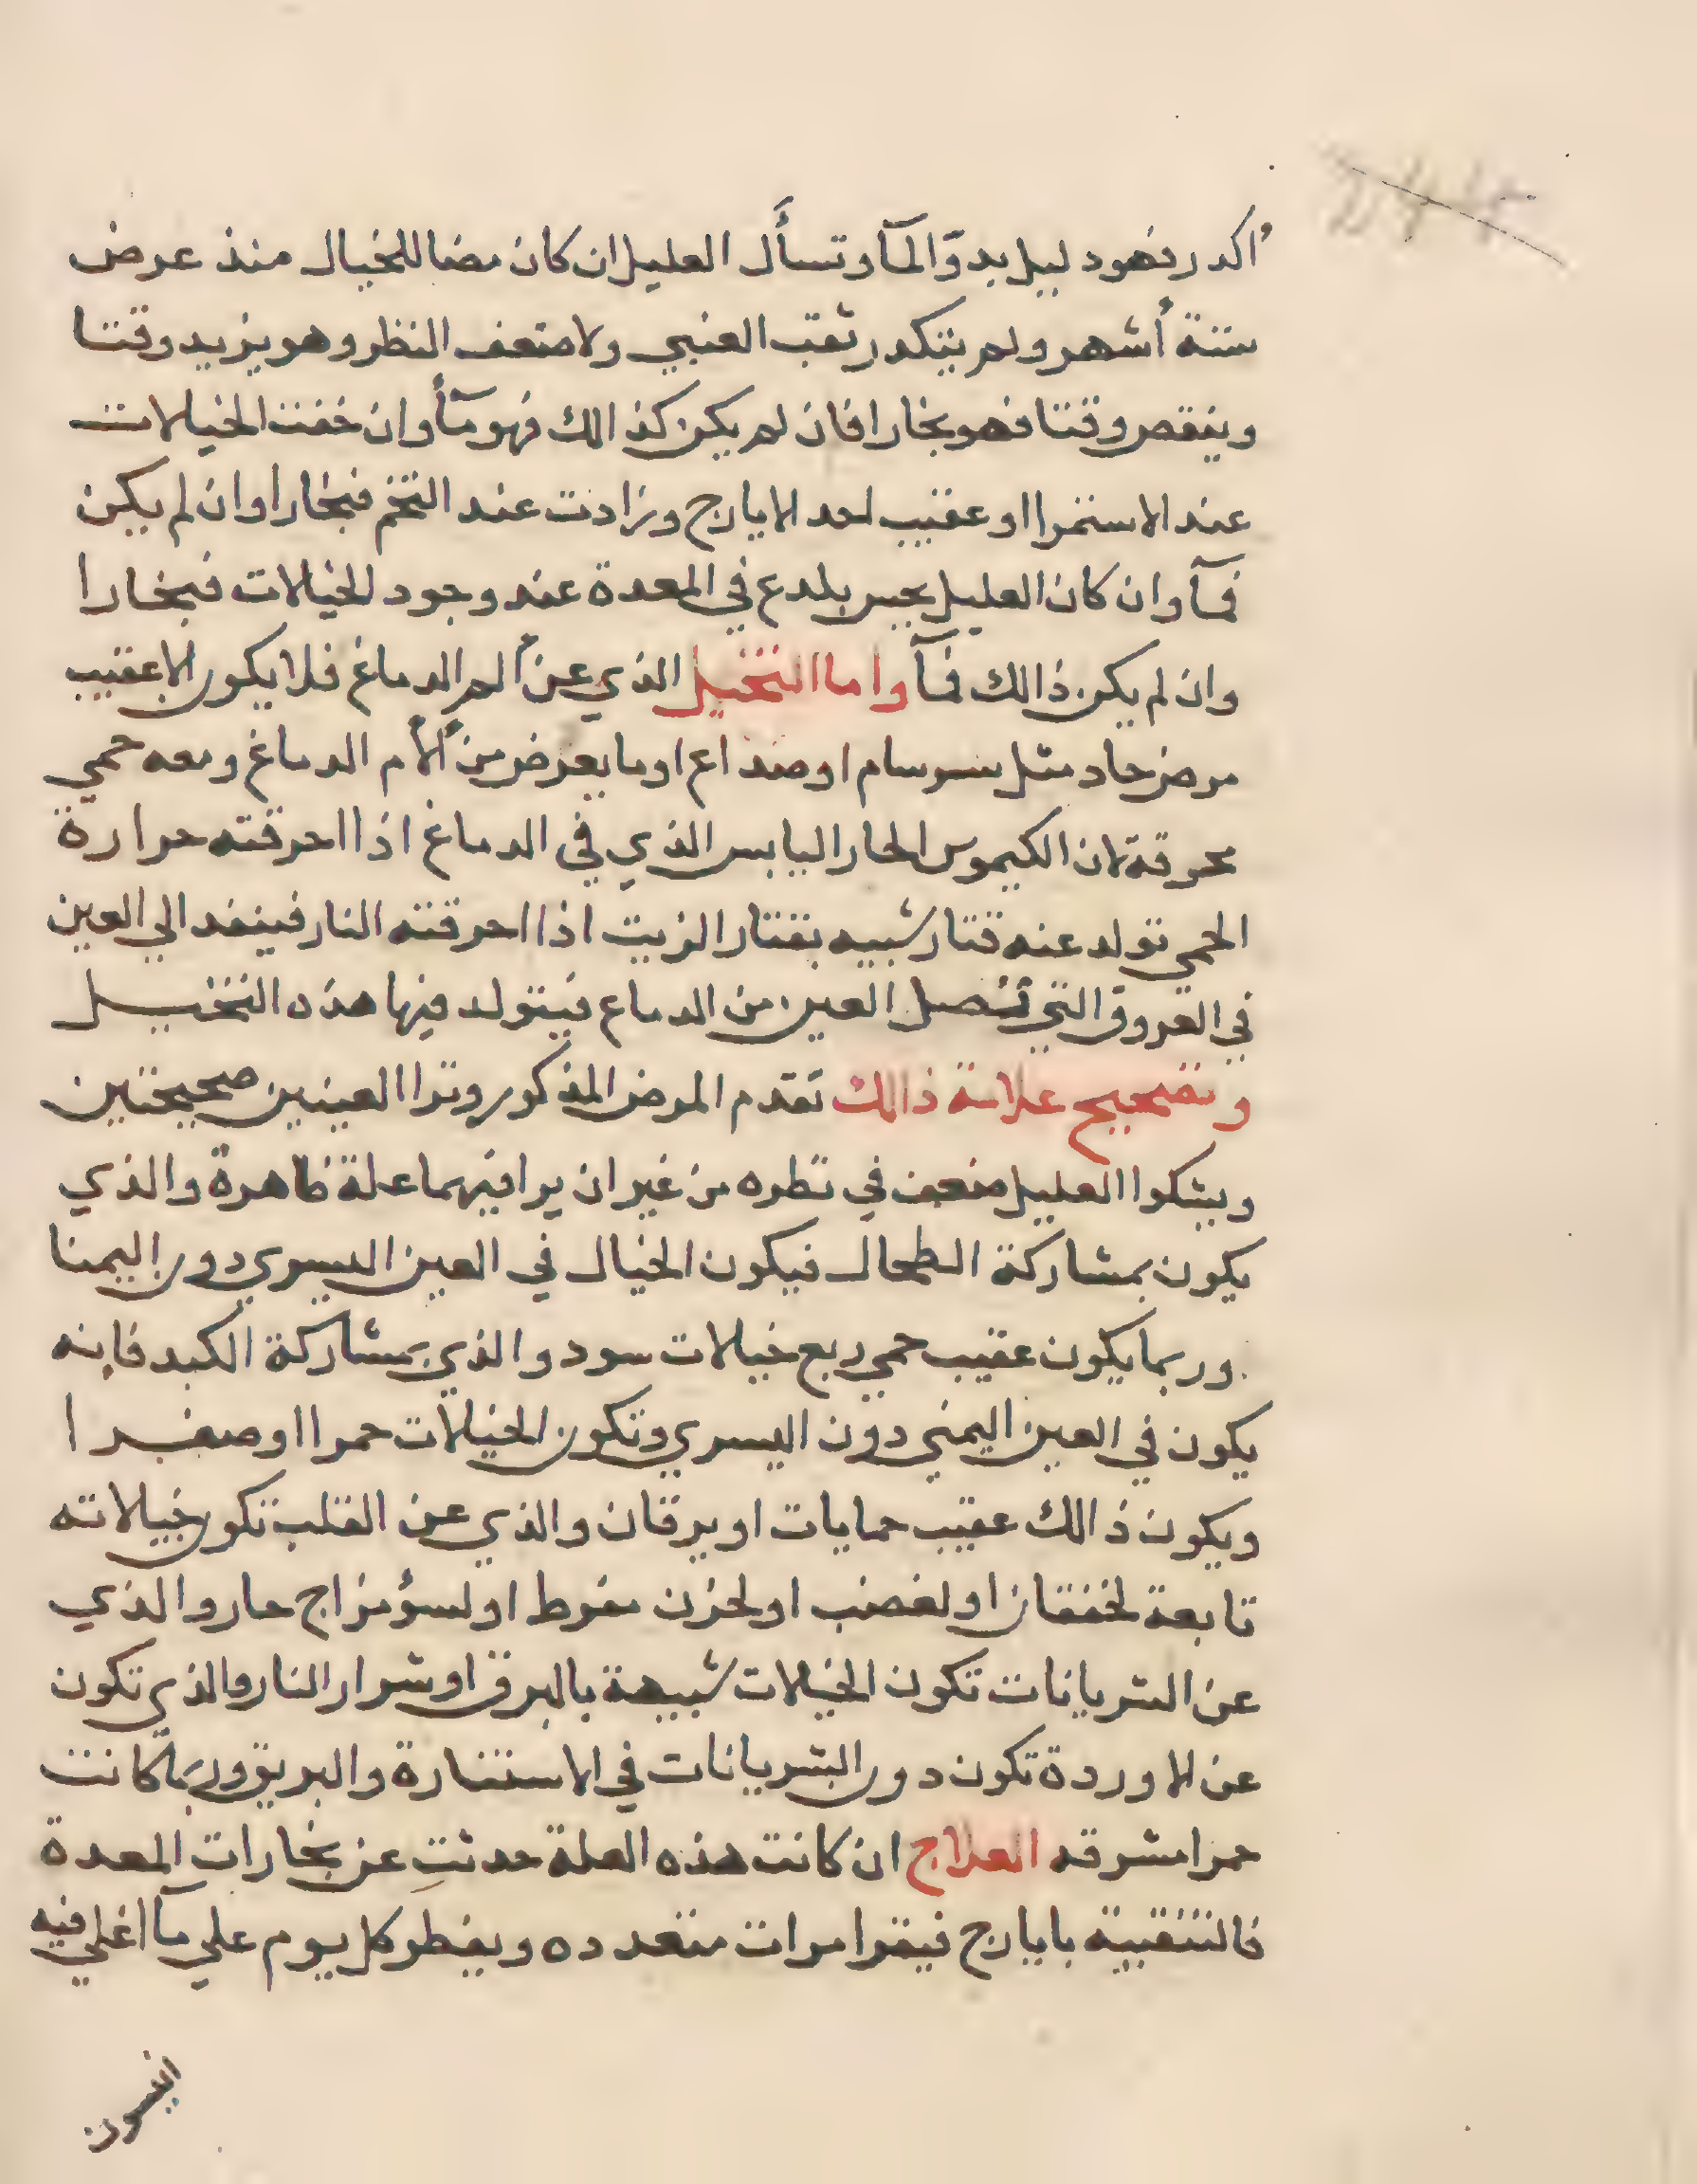 اكدر فهود ليل بدوّ المآ وتسأل العليل ان كان مضا للخيال منذ عرض
ستة أشهر ولم يتكدر ثقب العنبي ولا ضعف النظر وهو يزيد وقتا
وينقص وقتا فهو بخارا فان لم يكن كذالك فهو مآ وان خفت الخيلات
عند الاستمرا او عقيب احد الايارج وزادت عند التخم فبخارا وان لم يكن
فمآ وان كان العليل يحس بلدع في المعدة عند وجود الخيلات فبخارا
وان لم يكن ذالك فمآ واما التخيل الذي عن ألم الدماغ فلا يكون الا عقيب
مرض حاد مثل سرسام او صداع او ما يعرض من ألأم الدماغ ومعه حمي
محرقة لان الكيموس الحار اليابس الذي في الدماغ اذا احرقته حرارة
الحمي تولد عنه قتار شبيه بقتار الزيت اذا احرقته النار فينفد الي العين
في العروق التي تتصل العين من الدماع فيتولد فيها هذه التخيل
وتصحيح علامة ذالك تقدم المرض المذكور وترا العينين صحيحتين
ويشكوا العليل ضعف في نطره من غير ان يرا فيهما علة ظاهرة والذي
يكون بمشاركة الطحال فيكون الخيال في العين اليسري دون اليمنا
وربما يكون عقيب حمي ربع خيلات سود والذي بمشاركة الكبد فانه
يكون في العين اليمني دون اليسري وتكون الخيلات حمرا او صفرا
ويكون ذالك عقيب حمايات او يرقان والذي عن القلب تكون خيلاته
تابعة لخفقان او لغضب او لحزن مفرط او لسؤ مزاج حار والذي
عن الشريانات تكون الخيلات شبيهة بالبرق او شرار النار والذي تكون
عن الاوردة تكون دون الشريانات في الاستنارة والبريق وربما كانت
حمرا مشرقه العلاج ان كانت هذه العلة حدثتِ عن بخارات المعدة
فالتنقية بايارج فيقرا مرات متعدده ويفطر كل يوم علي مآ اغلي فيه
انيسون